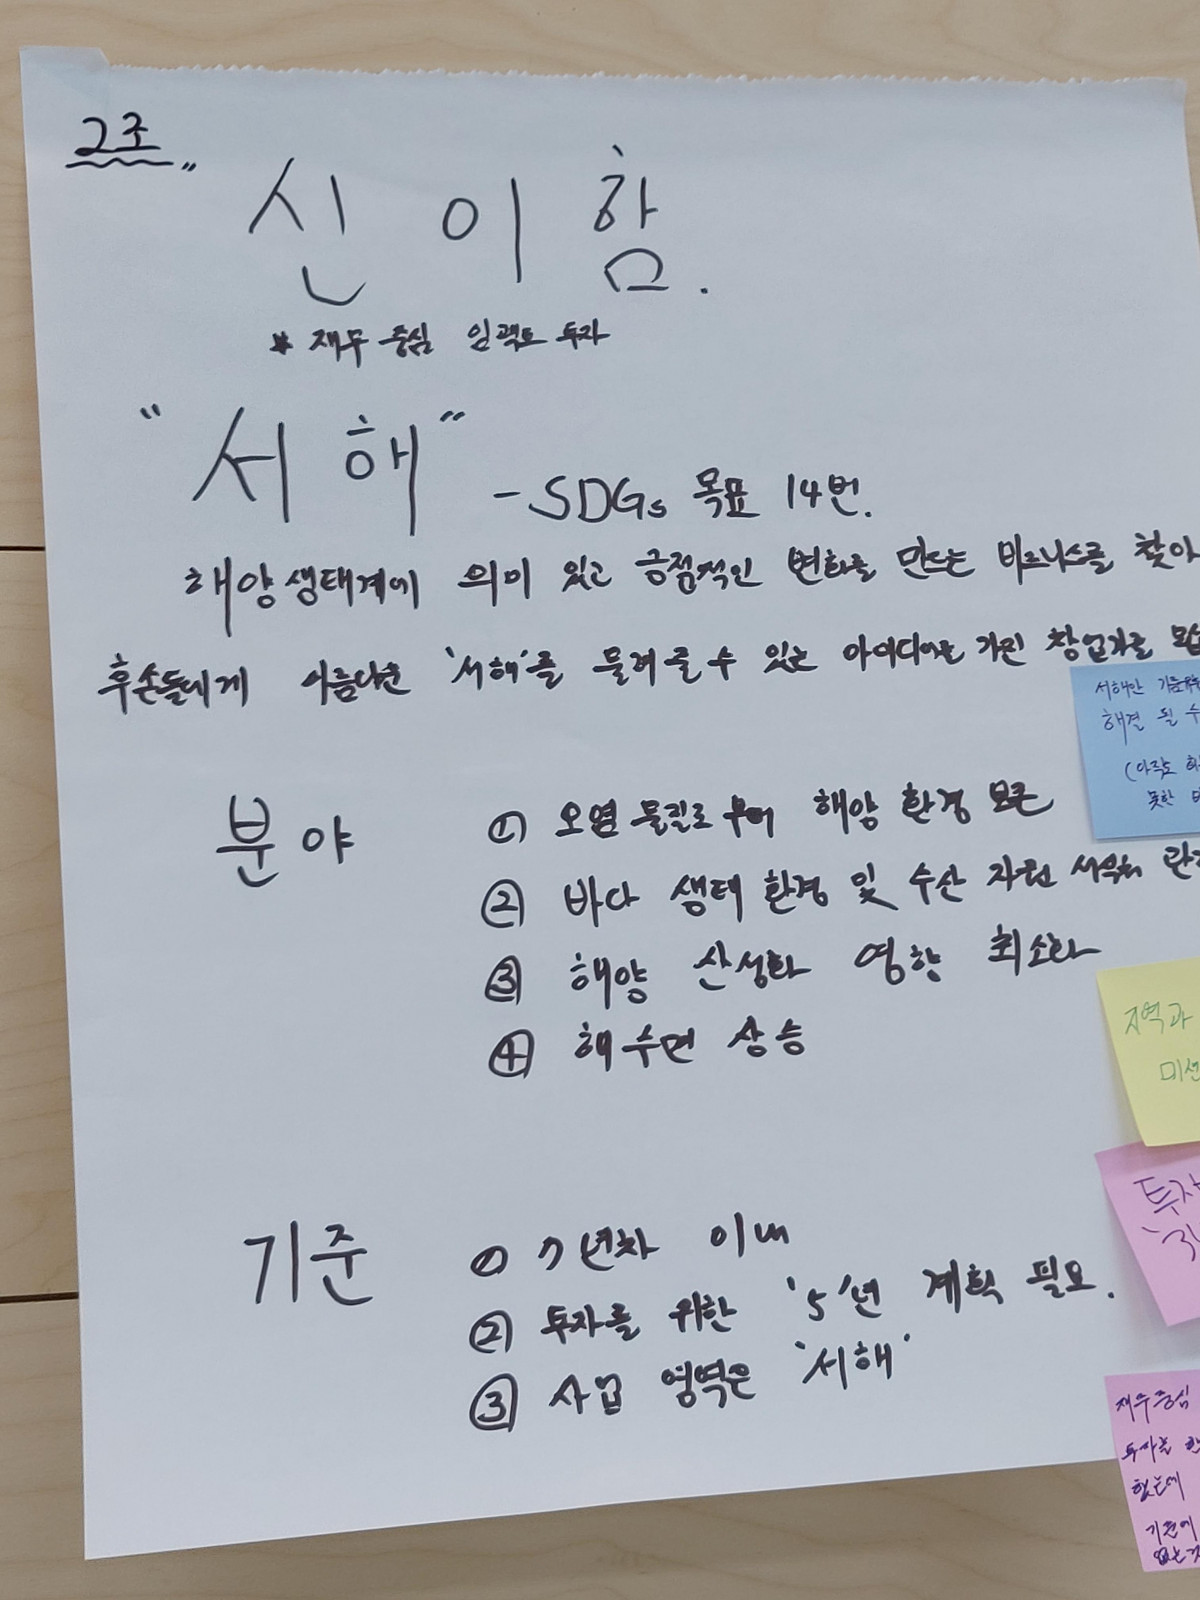 2조
신 이 함.
* 재무 중심 임팩트 투자
"서 해" - SDGs 목표 14번.
해양생태계에 의미 있고 긍정적인 변화를 만드는 비즈니스를 찾아
후손들에게 아름다운 '서해'를 물려 줄 수 있는 아이디어를 가진 창업가를
분야
① 오염 물질로 부터 해양 환경 보존
② 바다 생태 환경 및 수산 자원
③ 해양 산성화 영향 최소화
④ 해수면 상승
기준
① 7년차 이내
② 투자를 위한 '5'년 계획 필요.
③ 사업 영역은 '서해'
해결 될 수
(아직도
못한
지역과
미션
투자
재무중심
투자를
했는데
기준에
없는